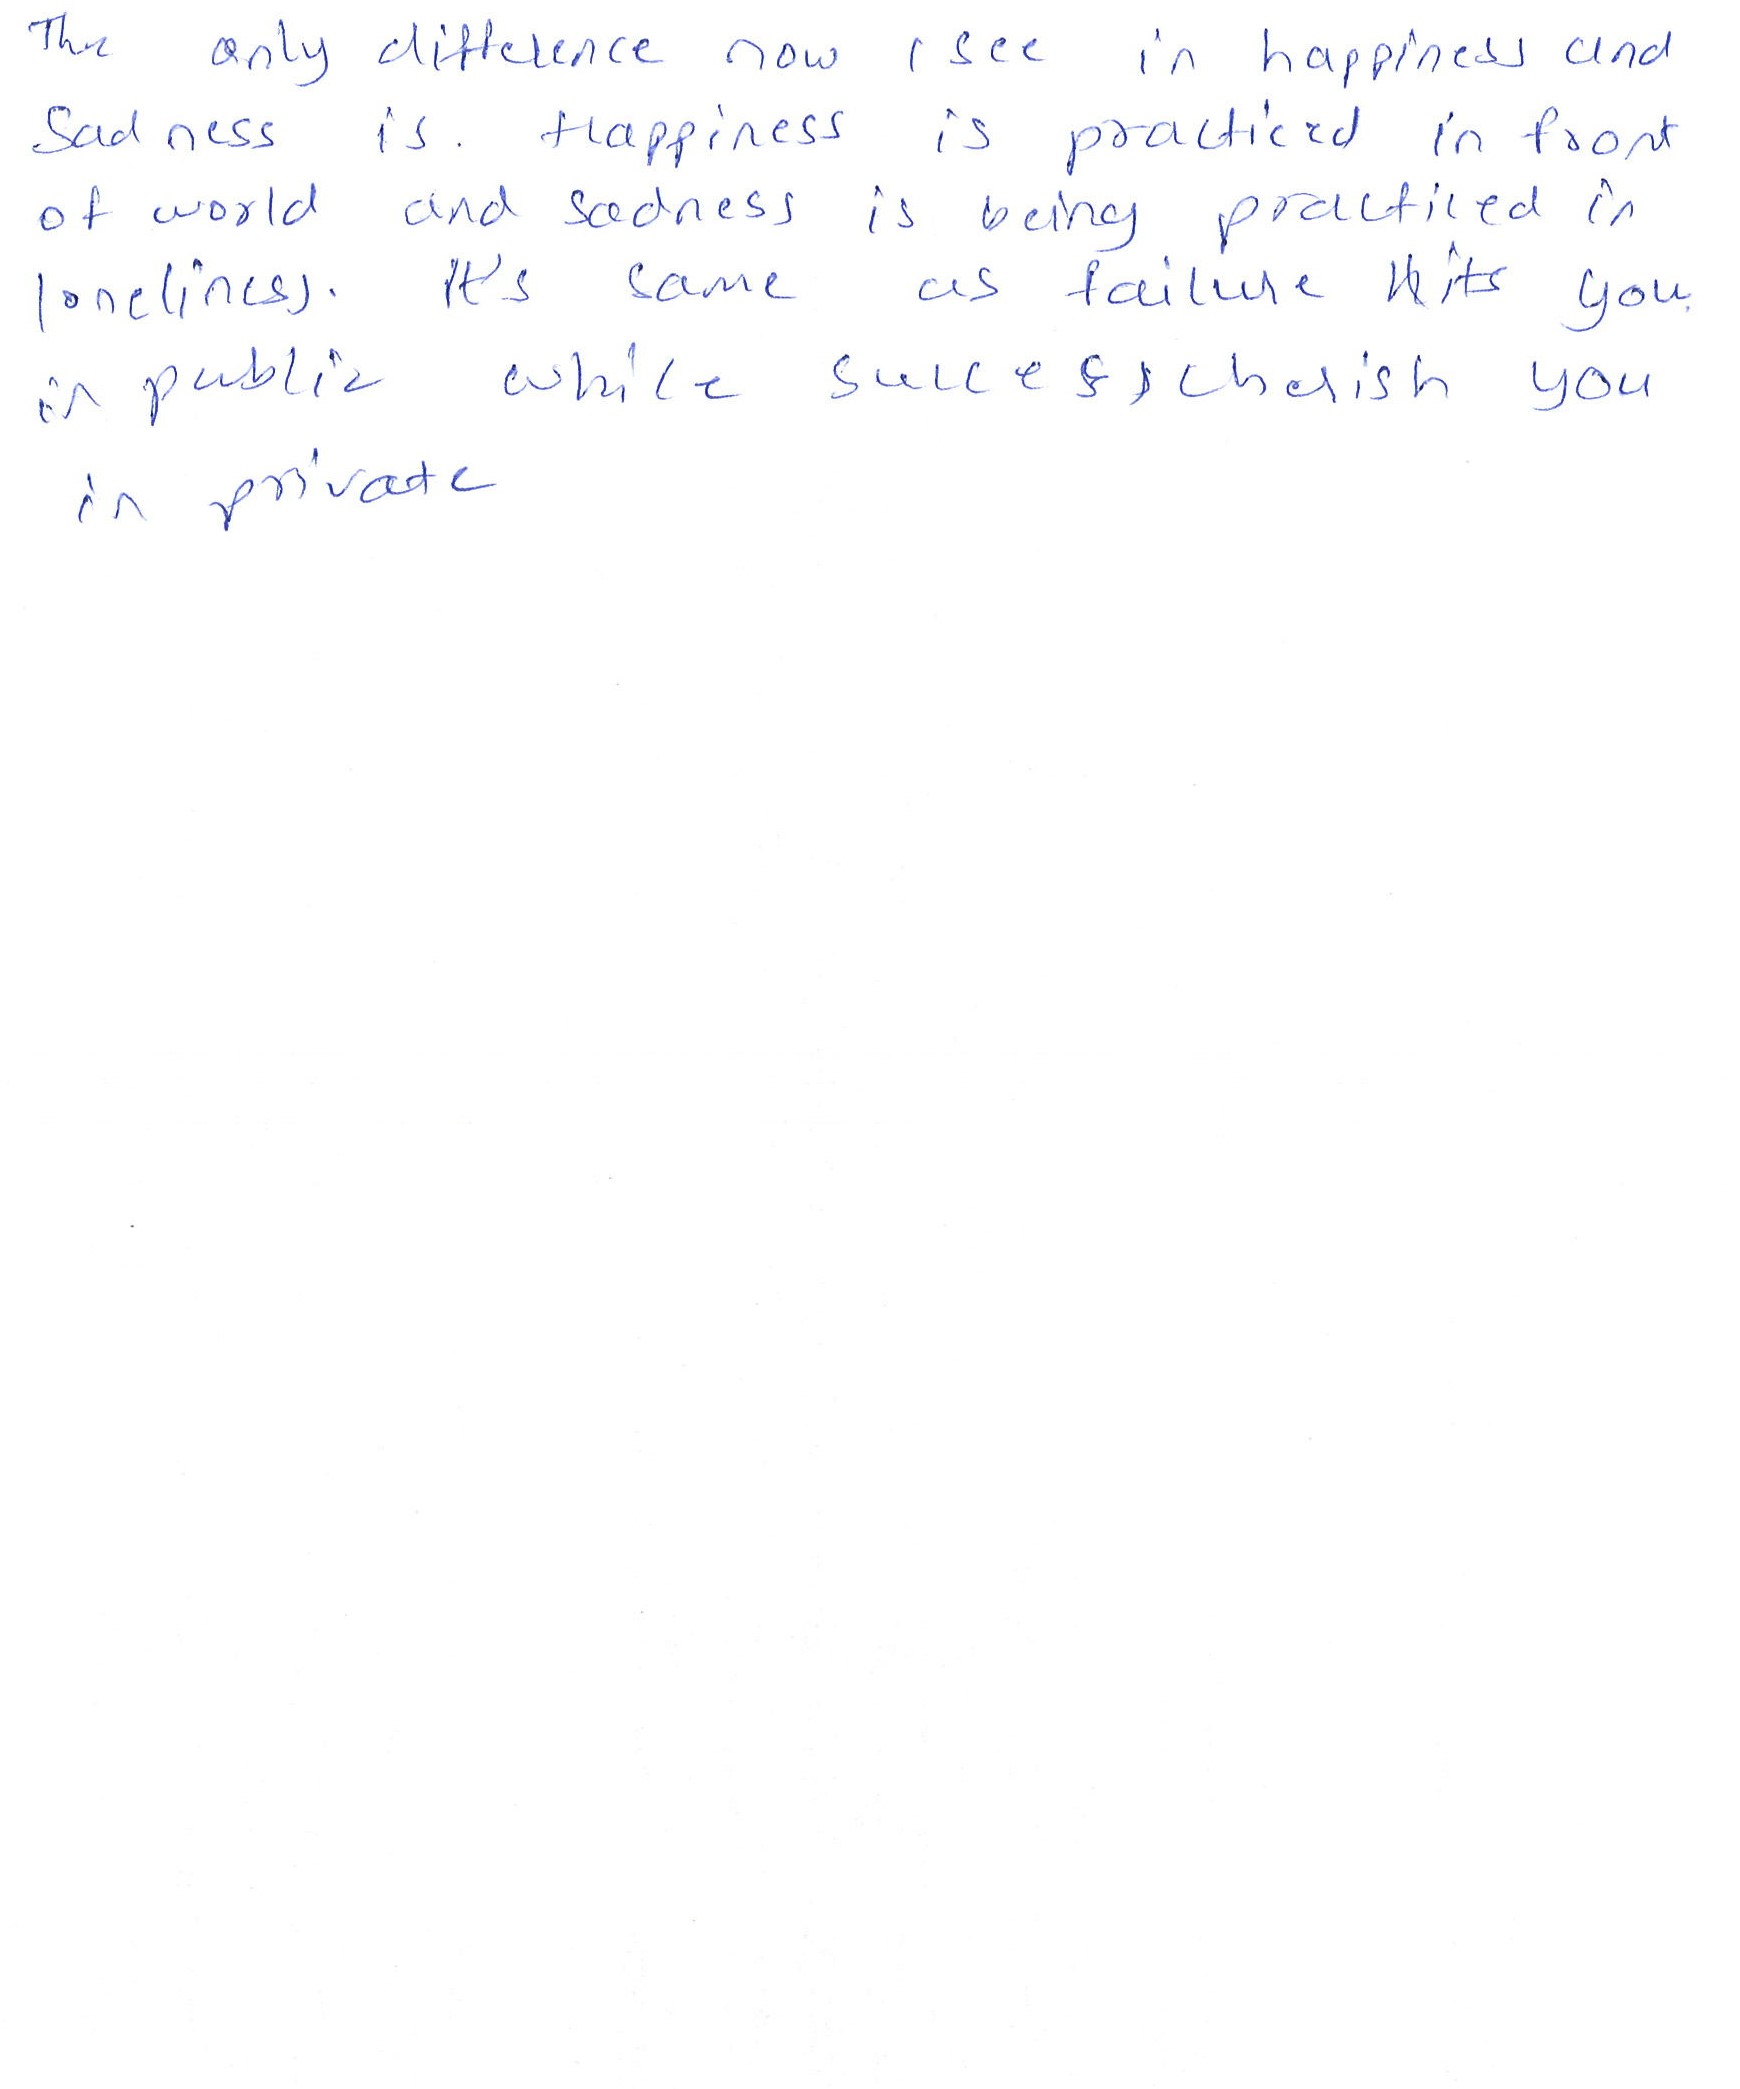 The only difference now I see in happiness and
Sadness is. Happiness is practiced in front
of world and sadness is being practiced in
loneliness. It's same as failure Hits you.
in public while success cherish you
in private